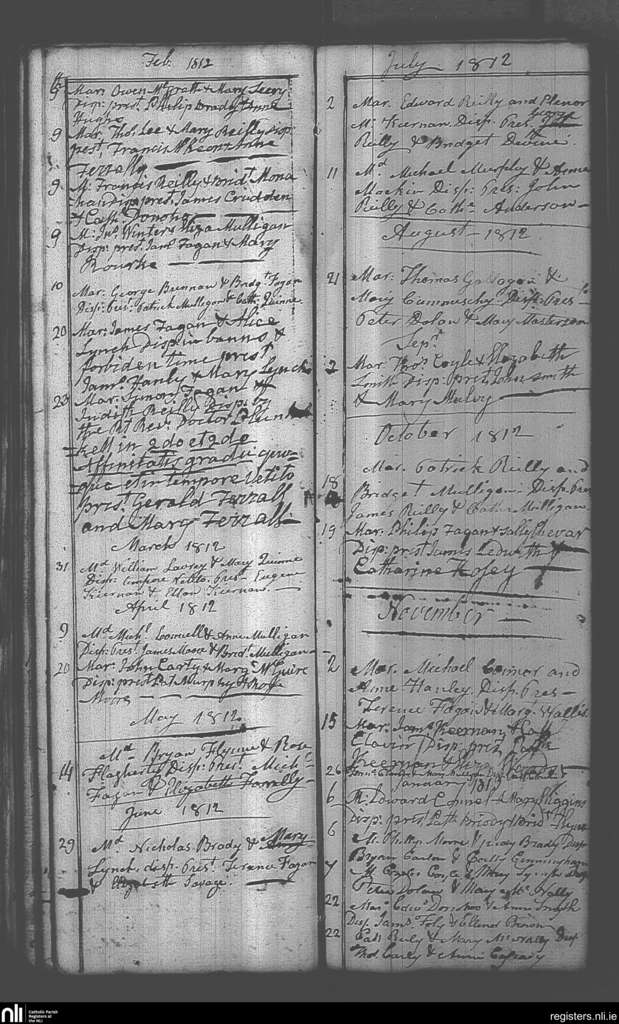 Feb. 1812
5 Mar. Owen McGrath & Mary Leery
Disp: prest. Philip Brady & Anne
Hughs
9 Mar. Tho. Lee & Mary Reilly Disp:
prest. Francis McKeon & Anne
Ferrall
9 M. Francis Reilly & Bridt. Mona
han Disp: prest. James Crudden
& Cath. Donohy
9 M. Jno. Winters & Eliza Mulligan
Disp: prest. Jams. Fagan & Mary
Rourke
10 Mar. George Brennan & Bridgt. Fagan
Disp: Pres. Patrick Mulligan & Cath. Quinne
20 Mar. James Fagan & Alice
Lynch Disp. in bannis &
forbiden time prest.
Jams. Hanly & Mary Lynch
23 Mar. Simon Fagan &
Judith Reilly Disp. by
the Rt. Rev. Doctor Plun
kett in 2do et 2do
Affinitatis gradu
in tempore vetito
prest. Gerald Ferrall
and Mary Ferrall
March 1812
31 Md. William Lavrey & Mary Quinne
Disp: tempore vetito. Pres. Eugen
Kiernan & Ellan Kiernan.
April 1812
9 Md. Michl. Connell & Anne Mulligan
Disp: Pres. James Moore & Bridt. Mulligan
20 Mar. John Carty & Marg. McGuire
Disp: prest. Pat. Murphy &
Moore
May 1812
14 Md. Bryan Flynne & Rose
Flagherty Disp: Prest. Mich.
Fagan & Elizabeth Farrelly
June 1812
29 Md. Nicholas Brady & Mary
Lynch, disp. Prest. Terence Fagan
& Elizabeth Savage.
July 1812
2 Mar. Edward Reilly and Elenor
McKiernan Disp: Pres.
Reilly & Bridget Devine
11 Md. Michael Murphy & Anne
Mackin Disp: Pres: John
Reilly & Cathe. Anderson
August 1812
21 Mar. Thomas Gallogan &
Mary Cummuschy. Disp: Pres
Peter Dolan & Mary Masterson
Sepr.
2 Mar. Thos. Coyle & Elizabeth
Smith Disp: prest. John Smith
& Mary Mulvy
October 1812
18 Mar. Patrick Reilly and
Bridget Mulligan: Disp: Pres
James Reilly & Cath. Mulligan
19 Mar. Philip Fagan & Sally
Disp: prest. James Ledwith &
Catharine Kosey
November
2 Mar. Michael Connor and
Anne Hanley. Disp. Pres
Terence Fagan & Margt. Wallis
15 Mar. Jams. Keernan & Cath
Disp: prest. Patk.
Keernan &
26
January 1813
6 M. Edward Connel & Mary Higgins
Disp: prest. Patk. Briody & Bridt. Flynne
6 M. Phillip Morne & Judy Brady Disp
Bryan Carlan & Betty Cunningham
7 M. Charles Coyle & Mary Lynch Disp
Peter Dolan & Mary Ann Nally
22 Mar. Edwd. Donohoo & Anne Smyth
Disp Jams. Foly & Ellenor Brown
22 Patt Reily & Mary McNally Disp
Thos. Carly & Annie Cassady
nli
Catholic Parish
Registers at
the NLI
registers.nli.ie